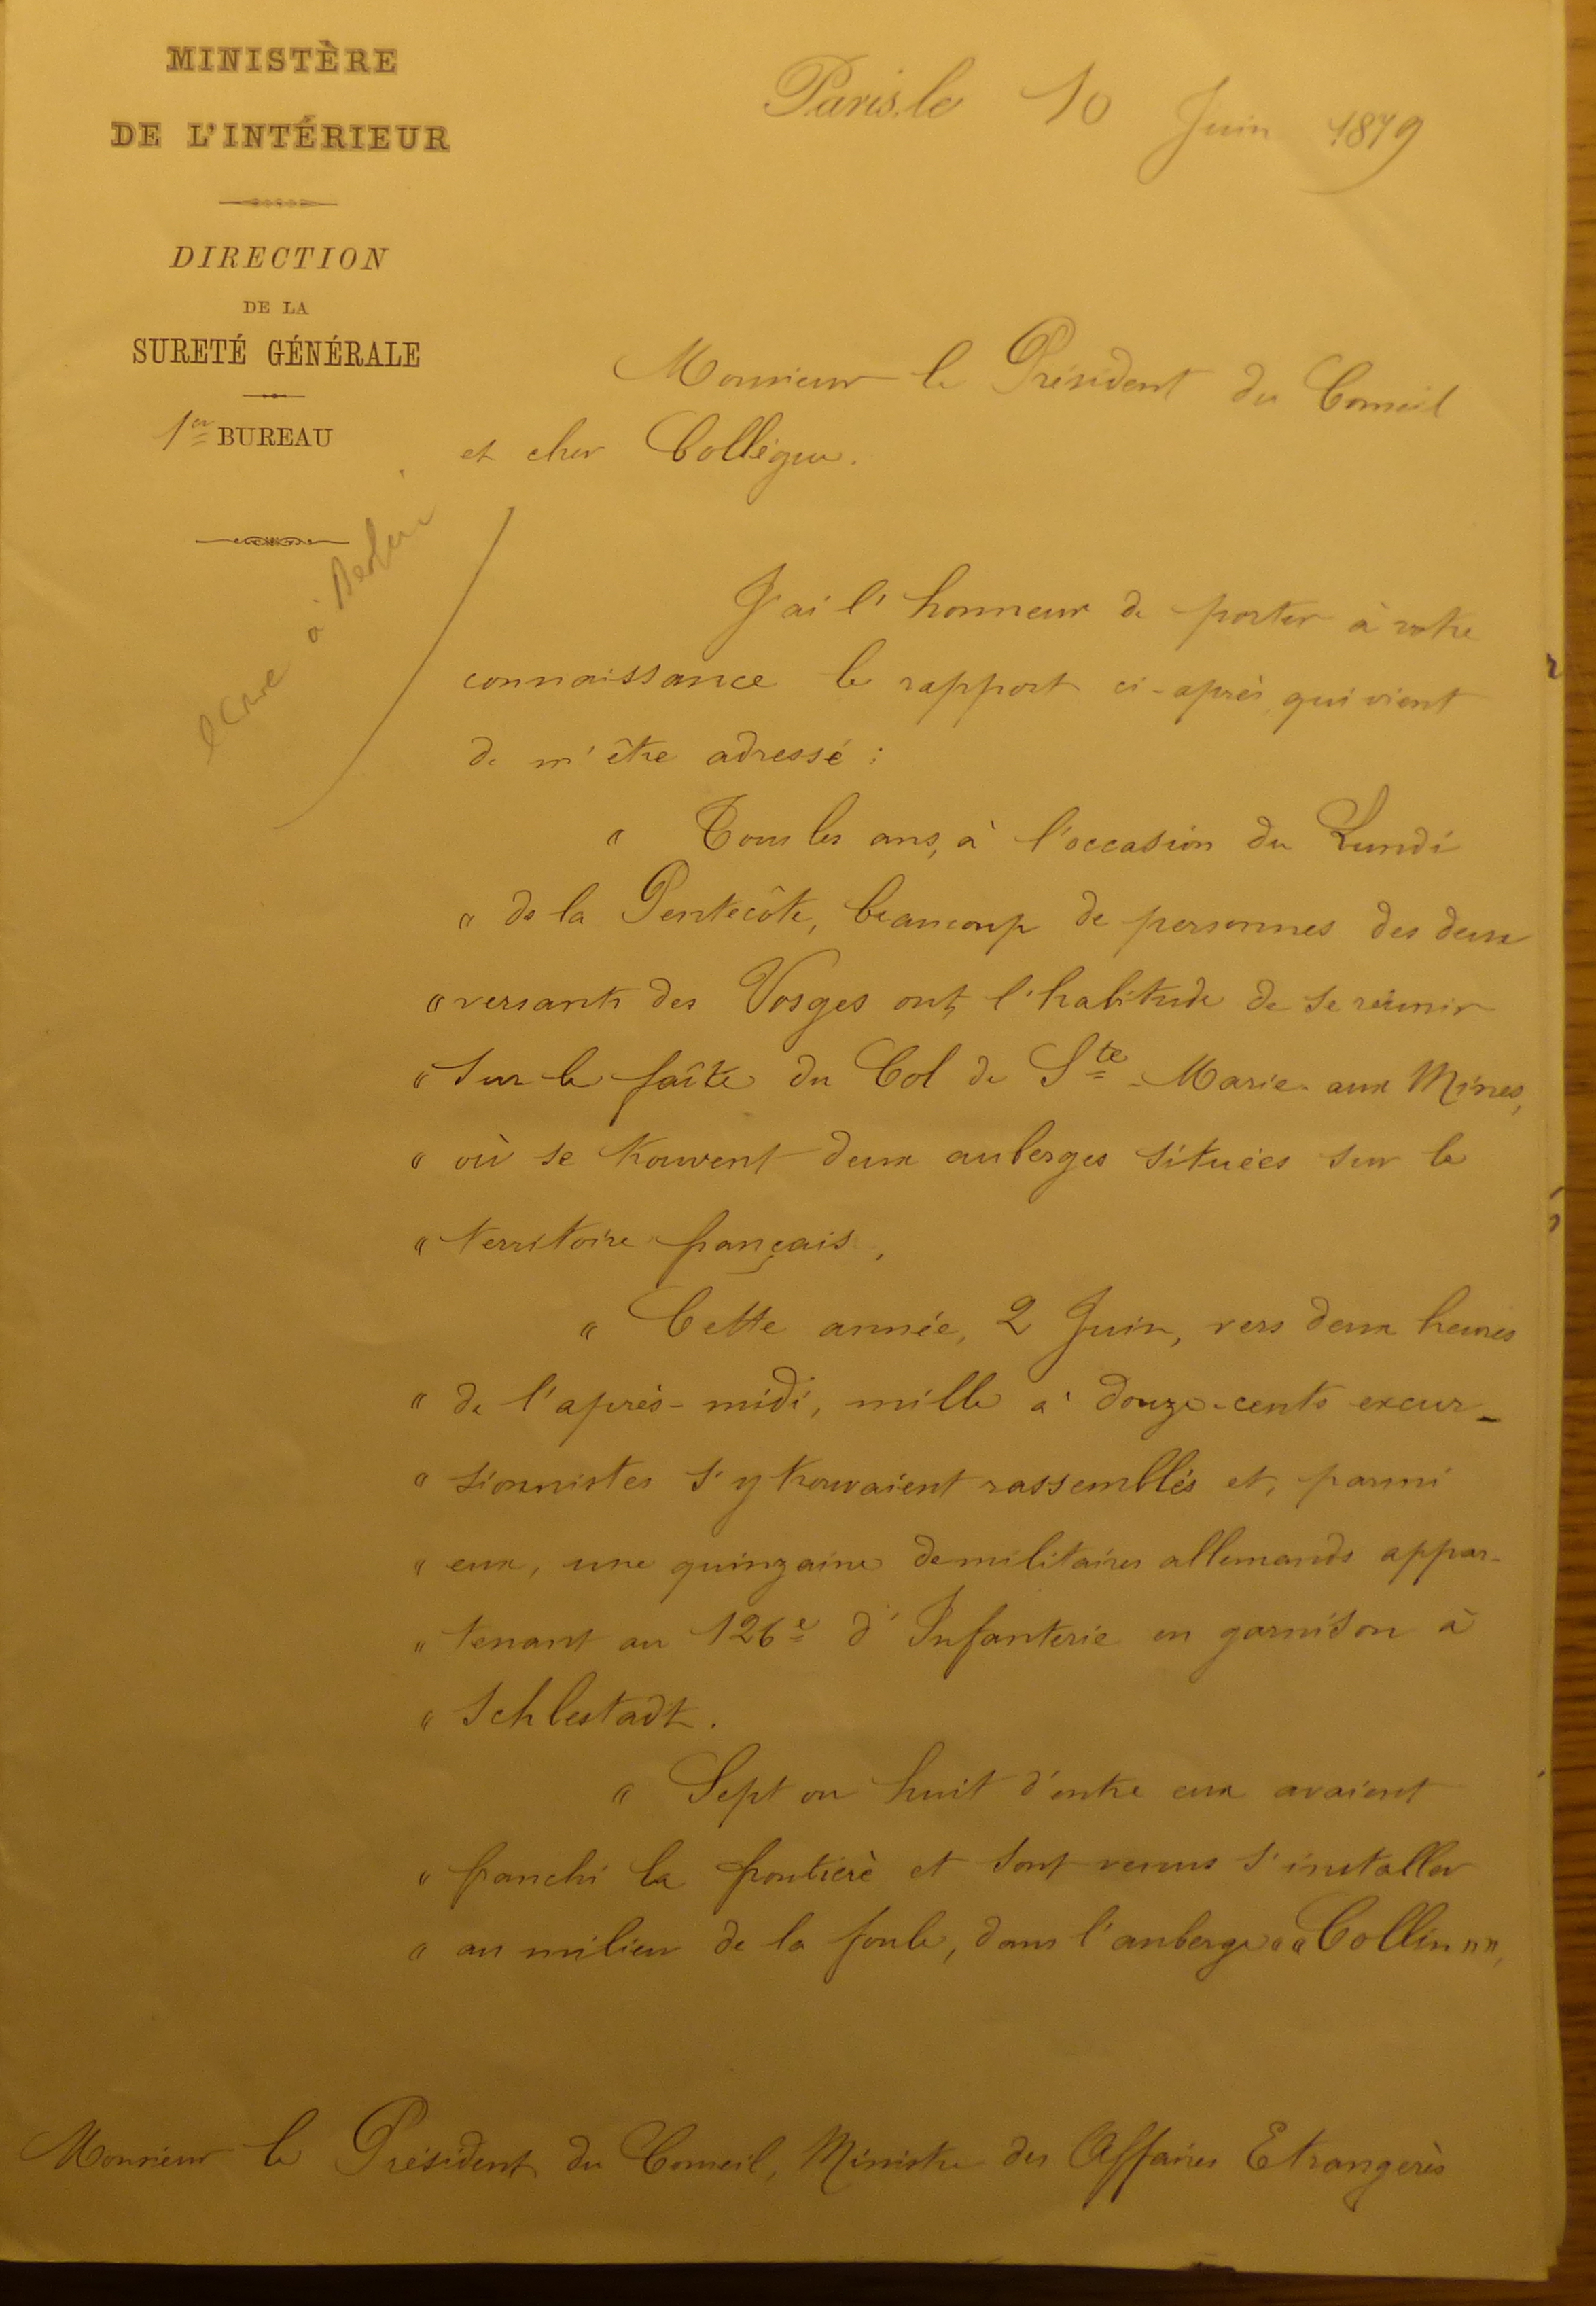 MINISTÈRE
DE L'INTÉRIEUR
DIRECTION
DE LA
SURETÉ GÉNÉRALE
1er BUREAU
Paris, le 10 Juin 1879
écrire à Berlin
Monsieur le Président du Conseil
et cher Collègue.
J'ai l'honneur de porter à votre
connaissance le rapport ci-après, qui vient
de m'être adressé :
" Tous les ans, à l'occasion du Lundi
" de la Pentecôte, beaucoup de personnes des deux
" versants des Vosges ont l'habitude de se réunir
" sur le faîte du Col de Ste-Marie-aux Mines,
" où se trouvent deux auberges situées sur le
" territoire français,
" Cette année, 2 Juin, vers deux heures
" de l'après-midi, mille à douze-cents excur-
" sionnistes s'y trouvaient rassemblés et, parmi
" eux, une quinzaine de militaires allemands appar-
" tenant au 126e d'Infanterie en garnison à
" Schlestadt.
" Sept ou huit d'entre eux avaient
" franchi la frontière et sont venus s'installer
" au milieu de la foule, dans l'auberge ""Collin"",
Monsieur le Président du Conseil, Ministre des Affaires Etrangères